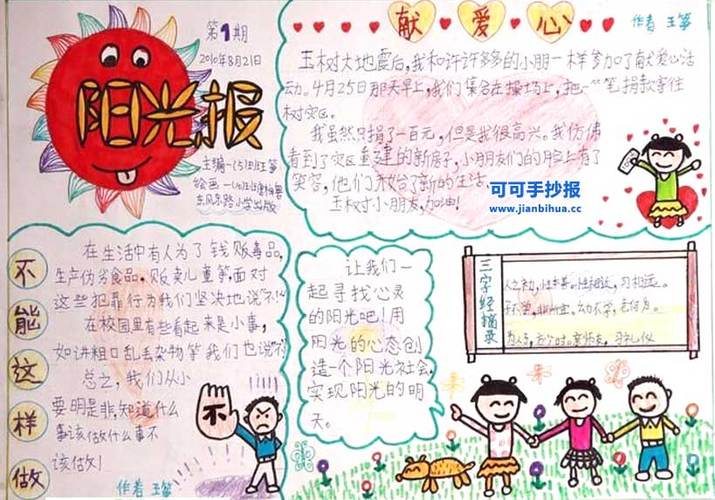 第1期
2010年8月21日
阳光报
主编一(5)班 王筝
东风东路小学出版
献爱心
作者 王筝
玉树大地震后,我和许许多多的小朋一样参加了献爱心活
动。4月25日那天早上,我们集合在操场上,把一笔笔捐款寄往
玉树灾区。
我虽然只捐了一百元,但是我很高兴。我仿佛
看到了灾区重建的新房子,小朋友们的脸上有了
笑容,他们开始了新的生活。
玉树小朋友,加油!
可可手抄报
www.jianbihua.cc
不能这样做
在生活中有人为了钱贩毒品,
生产伪劣食品,贩卖儿童等,面对
这些犯罪行为我们坚决地说"不!"
在校园里有些看起来是小事,
如讲粗口乱丢杂物等我们也说"不"
总之,我们从小
要明是非知道什么
事该做什么事不
该做!
作者 王筝
不
让我们一
起寻找心灵
的阳光吧!用
阳光的心态创
造一个阳光社会,
实现阳光的明
天。
三字经摘录
人之初,性本善。性相近,习相远。
为人子,方少时。亲师友,习礼仪